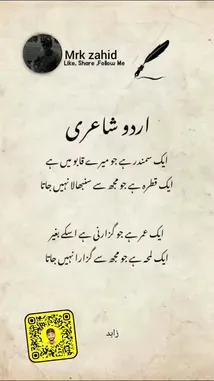 Mrk zahid
Like, Share ,Follow Me
اردو شاعری
ایک سمندر ہے جو میرے قابو میں ہے
ایک قطرہ ہے جو مجھ سے سنبھالا نہیں جاتا
ایک عمر ہے جو گزارنی ہے اسکے بغیر
ایک لمحہ ہے جو مجھ سے گزارا نہیں جاتا
زاہد